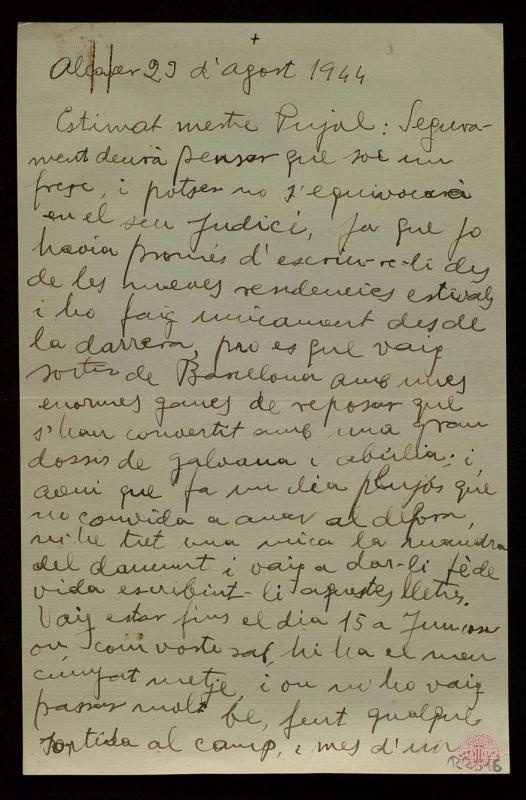 +
Alcaçer 29 d'Agost 1944
Estimat mestre Pujol: Segura-
ment deurà pensar que soc un
fresc, i potser no s'equivocarà
en el seu judici, ja que jo
havia promés d'escriu-re-li des
de les meves resdencies estivals
i ho faig unicament desde
la darrera, pro es que vaig
sortir de Barcelona amb unes
enormes ganes de reposar que
s'han convertit amb una gran
dossis de galvana i abúlia; i
aqui que fa un dia plujós que
no convida a anar al defora,
m'he tret una mica la mandra
del damunt i vaig a dar-li fè de
vida escribint-li aquestes lletres.
Vaig estar fins el dia 15 a Juncosa
on, com vosté sap, hi ha el meu
cunyat metje, i on m'ho vaig
passar molt be, fent qualque
sortida al camp, i mes d'un